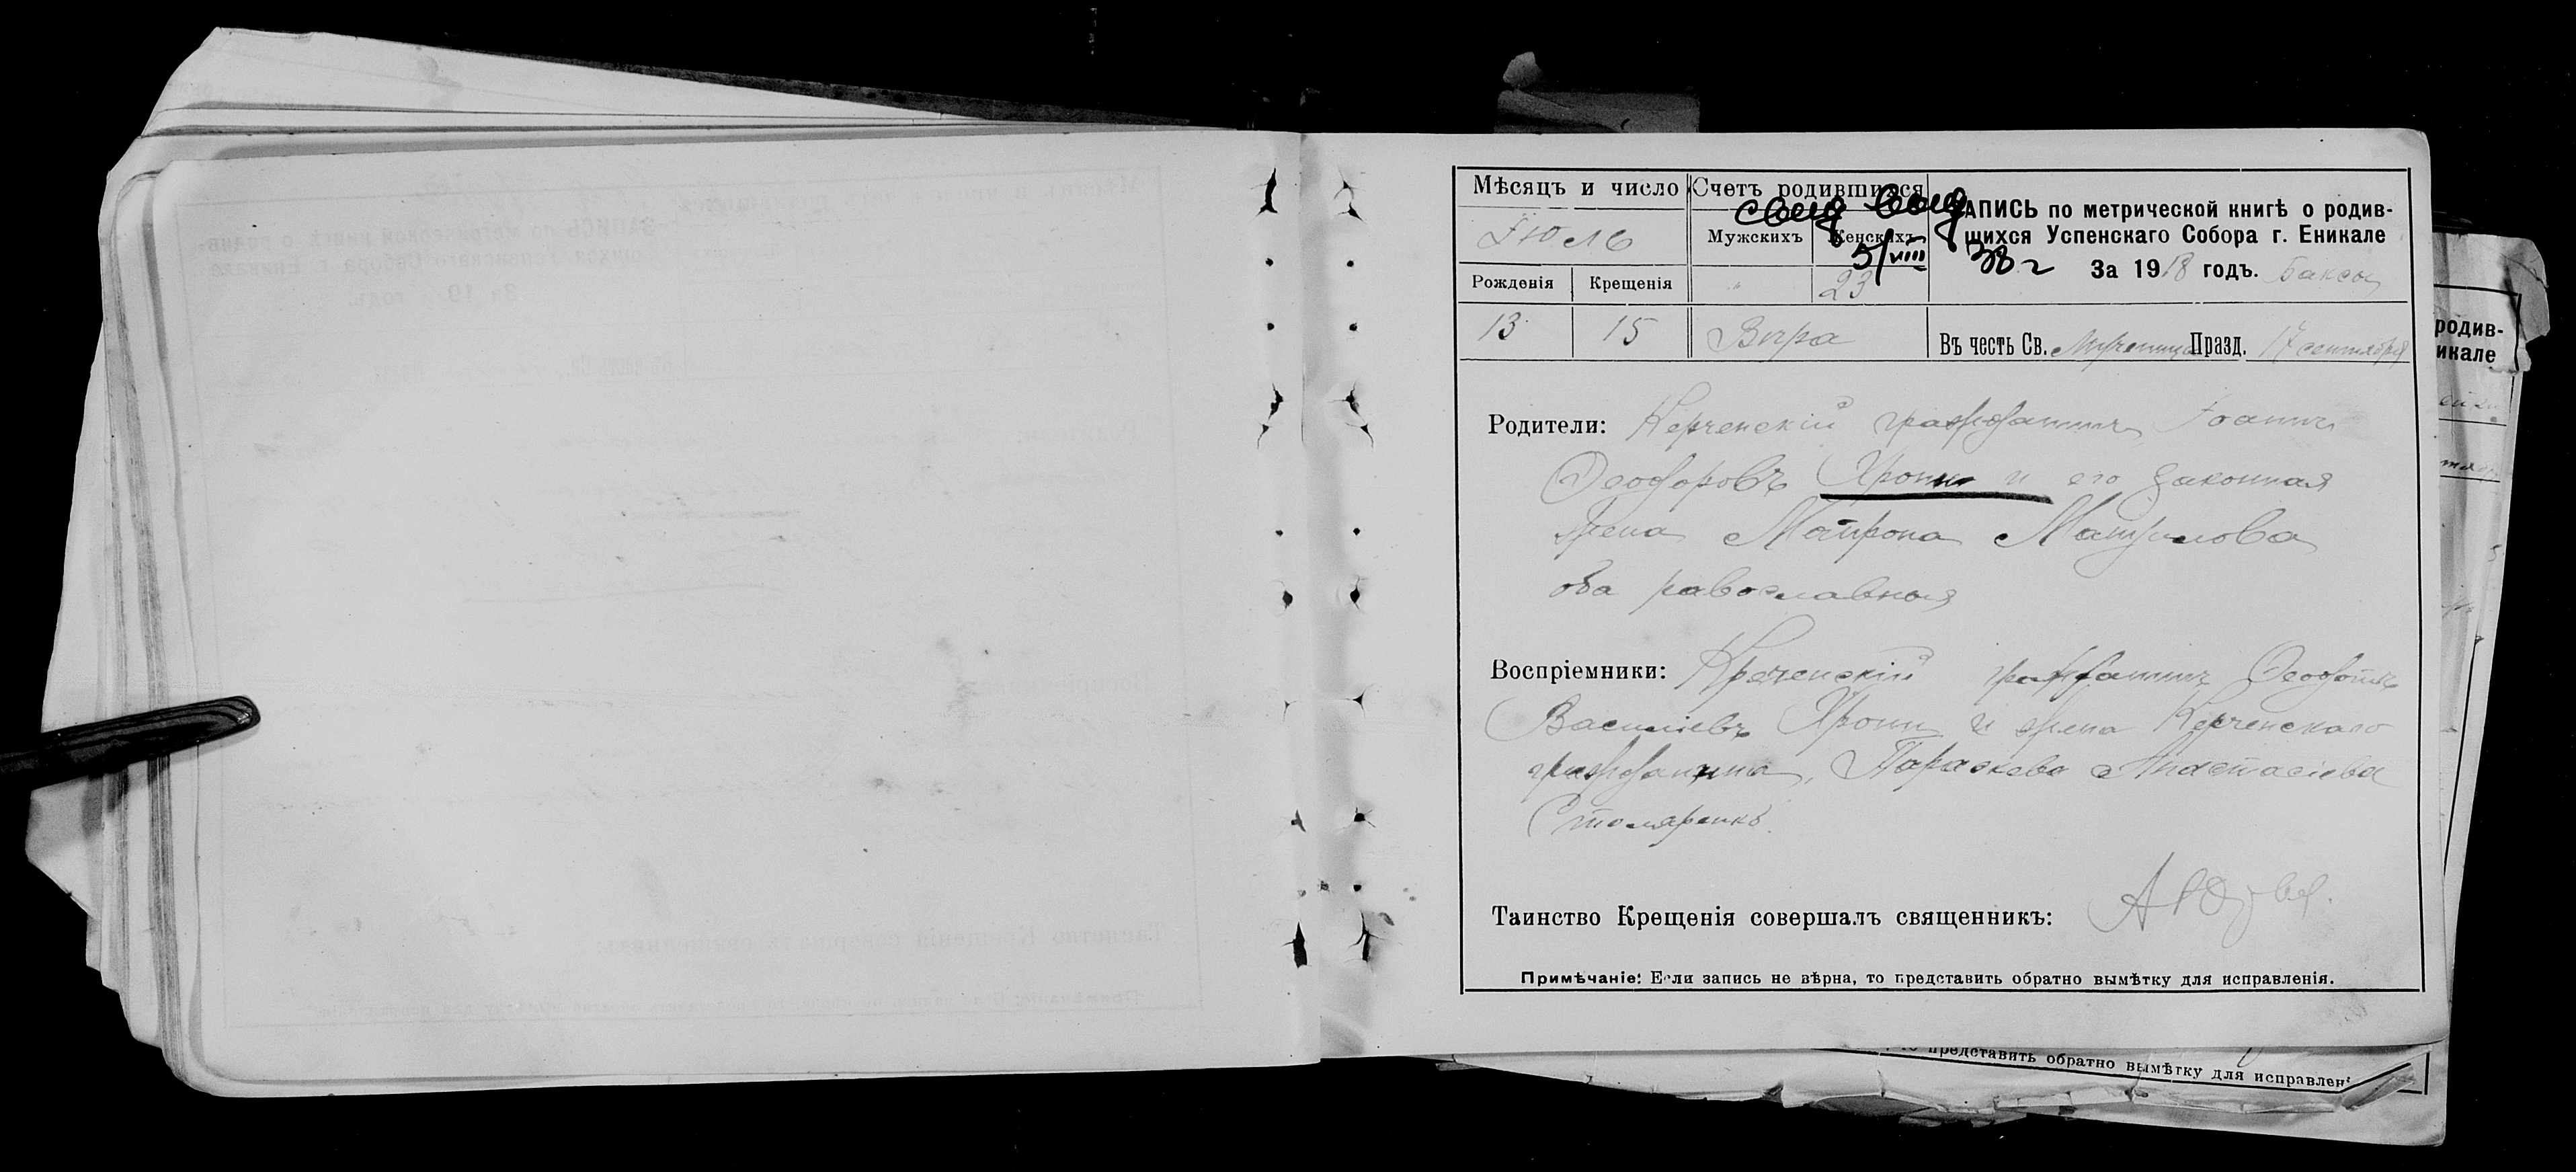 Мѣсяцъ и число
Іюль
Рожденія Крещенія
13 15
Счетъ родившихся
Мужскихъ Женскихъ
" 23
Вѣра
свид выд
5/VIII 38 г
ЗАПИСЬ по метрической книгѣ о родив-
шихся Успенскаго Собора г. Еникале
За 1918 годъ. Баксы
Въ честь Св. Мученицы Празд. 17 сентября
Родители: Керченскій гражданинъ Іоаннъ
Ѳеодоровъ Хрони и его законная
жена Матрона
оба равославныя
Воспріемники: Креченскій гражданинъ
Василіевъ Хрони и жена Керченскаго
гражданина, Параскева Анастасіева
Таинство Крещенія совершалъ священникъ:
Примѣчаніе: Если запись не вѣрна, то представить обратно вымѣтку для исправленія.
родив-
икале
представить обратно вымѣтку для исправлен